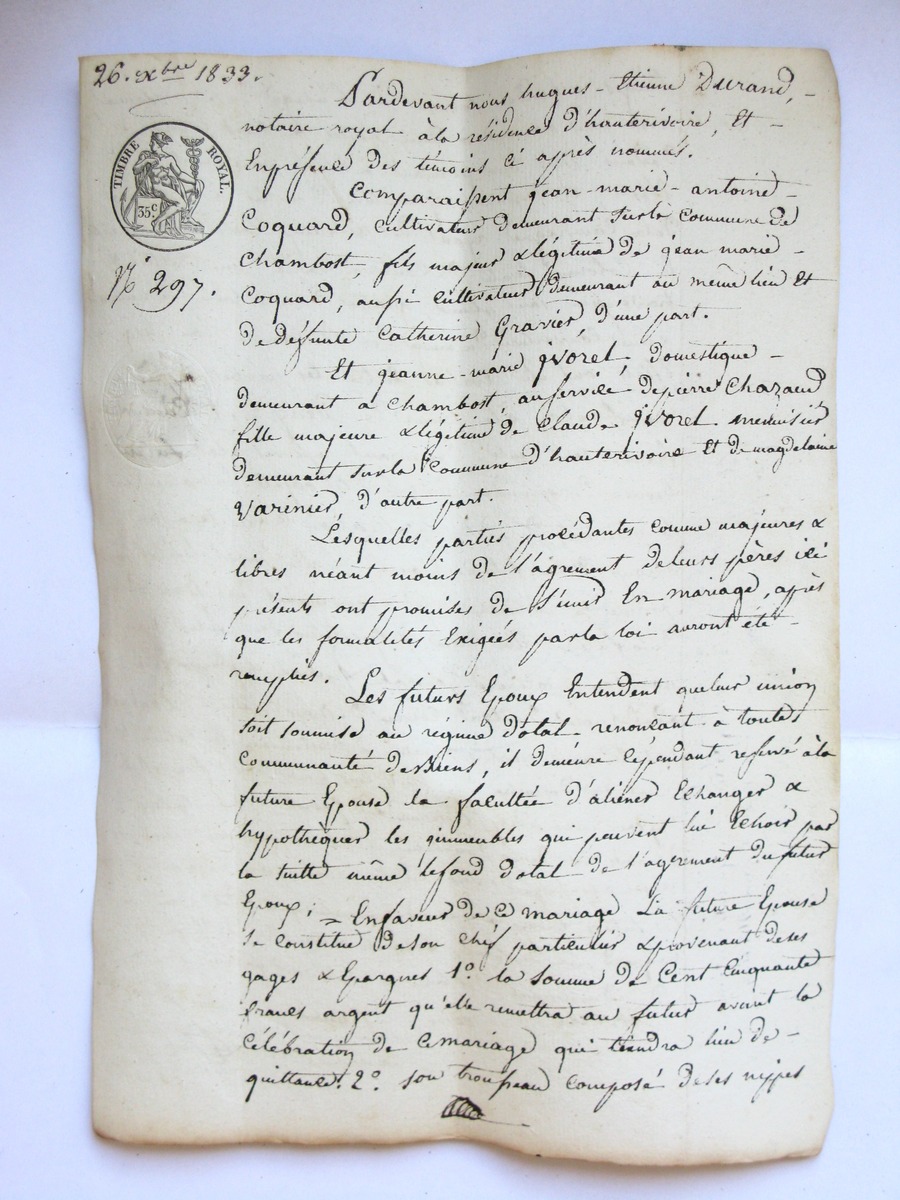 26. xbre 1833.
Pardevant nous hugues - Etienne Durand, -
notaire royal à la résidence d'hauterivoire, Et -
En présence des témoins ci après nommés.
TIMBRE ROYAL.
35c
Comparaissent jean-marie-antoine -
Coquard, cultivateur demeurant sur la commune de
Chambost, fils majeur & légitime de jean marie -
N° 297.
Coquard, aussi cultivateur demeurant au même lieu Et
de défunte Catherine Gravier, d'une part.
Et jeanne-marie jvorel, domestique -
demeurant a Chambost, au service de pierre Chazaud
fille majeure & légitime de Claude jvorel menuisier
demeurant sur la Commune d'hauterivoire Et de magdelaine
Varinier, d'autre part.
Lesquelles parties procédantes comme majeures &
libres néant moins de l'agrement de leurs pères ici
présents ont promises de s'unir En mariage, après
que les formalités Exigées par la loi auront été -
remplies.
Les futurs Epoux Entendent que leur union
soit soumise au régime dotal - renonçant à toutes
Communauté de Biens, il demeure cépendant reservé à la
future Epouse la facultée d'aliéner Echanger &
hypothèquer les jmmeubles qui peuvent lui Echoir par
la suitte même le fond dotal de l'agrement du futur
Epoux; = En faveur de Ce mariage La future Epouse
se constitue de son chef particulier & provenant de ses
gages & Epargnes 1° la somme de Cent Cinquante
francs argent qu'elle remettra au futur avant la
Célébration de Ce mariage qui tiendra lieu de -
quittance. 2° son trousseau composé de ses nippes